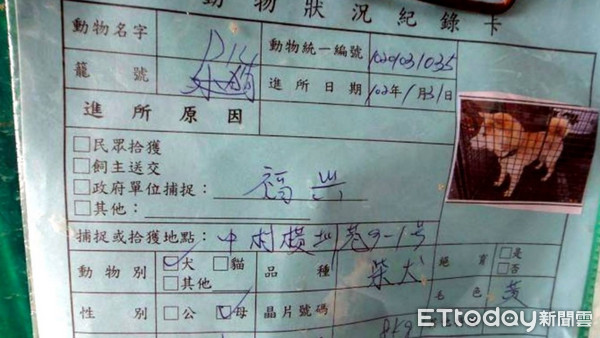 動物狀況紀錄卡
動物名字
動物統一編號 1020103/035
籠號
進所日期 102年1月31日
進所原因
□民眾拾獲
□飼主送交
□政府單位捕捉： 福興
□其他：
捕捉或拾獲地點：中村橫圳巷3-1号
動物別 ☑犬 □貓 □其他 品種 柴犬 絕育 □是 □否
性別 □公 ☑母 晶片號碼 毛色 黃
8kg
ETtoday新聞雲